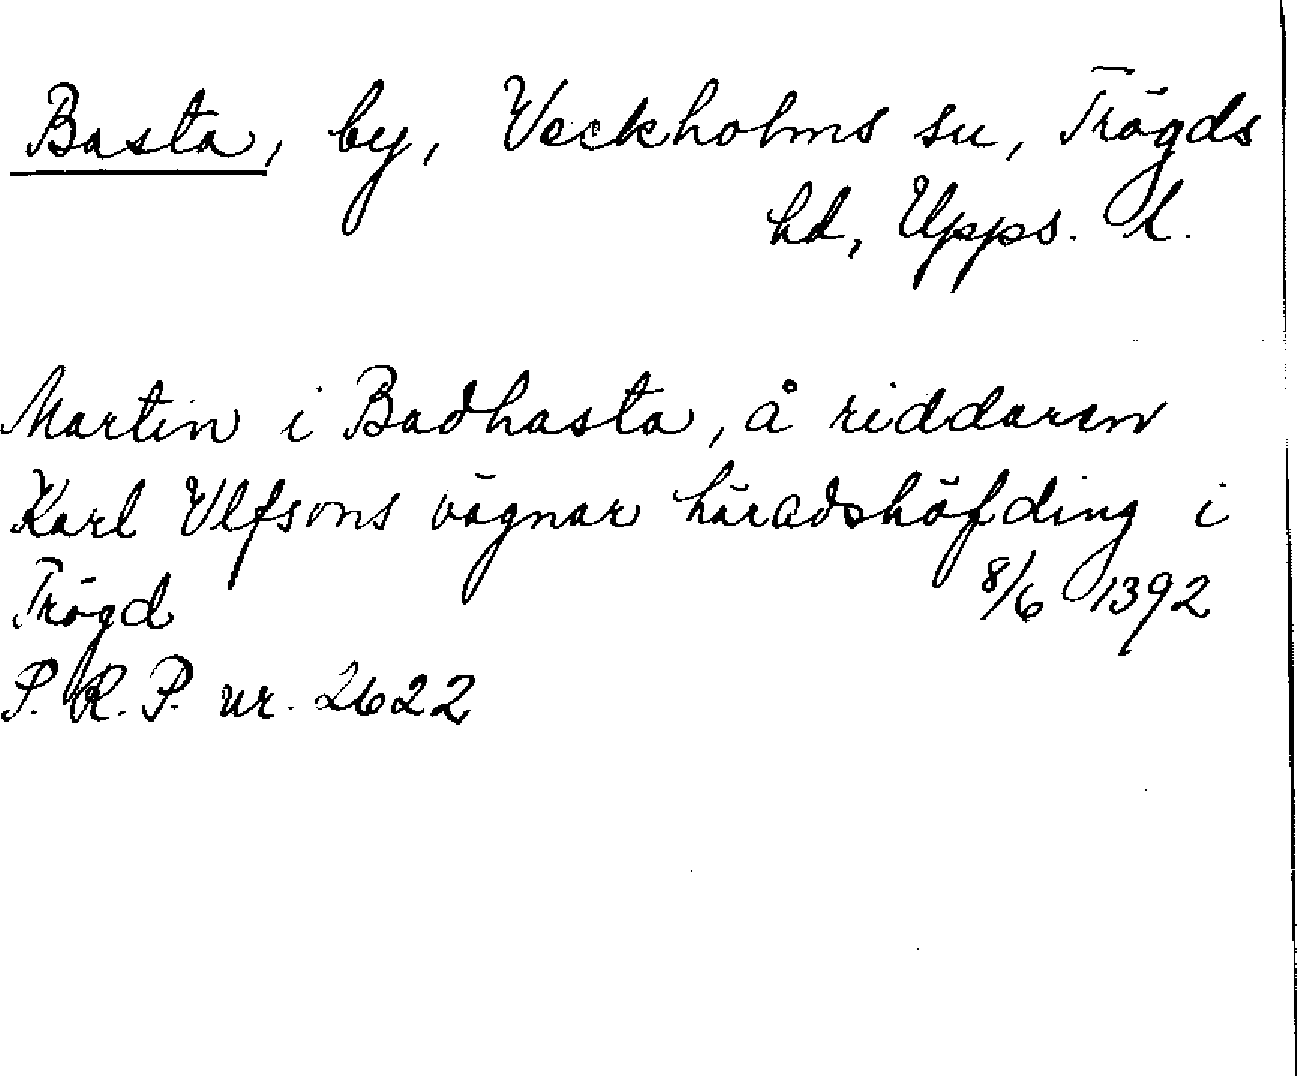 Basta, by, Veckholms sn, Trögds
hd, Upps. l.
Martin i Badhasta, å riddaren
Karl Ulfsons vägnar häradshöfding i
Trögd 8/6 1392
P. R. P. nr. 2622